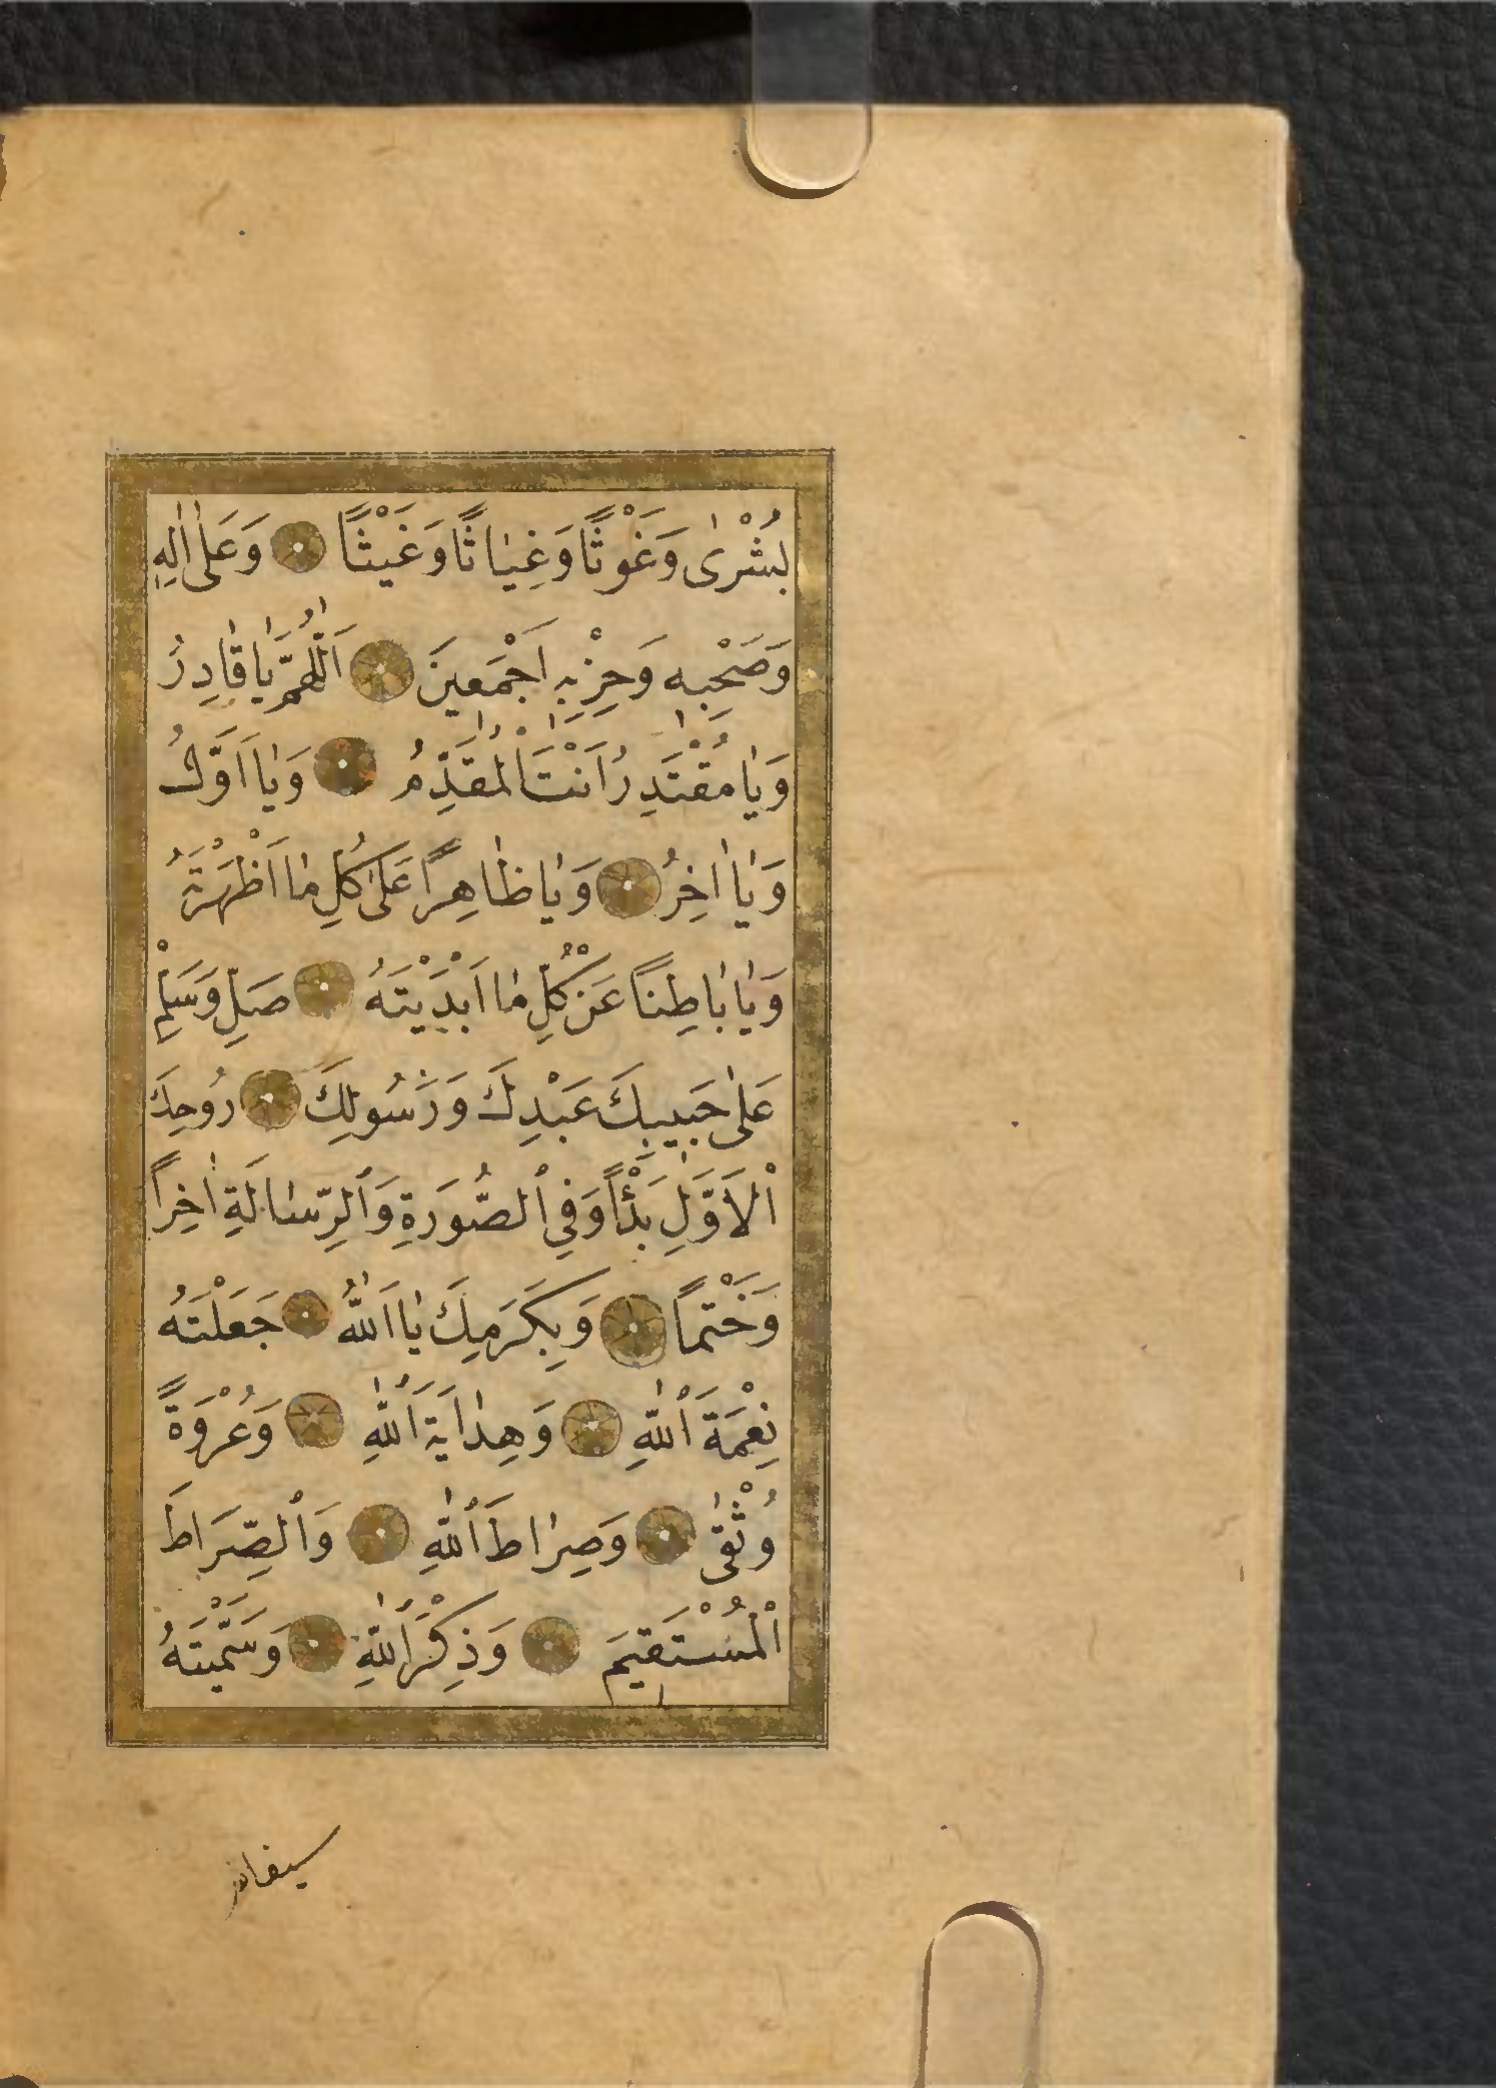 بُشْرٰى وَغَوْثًا وَغِيٰاثًا وَغَيْثًا وَعَلٰى اٰلِهِ
وَصَحْبِهِ وَحِزْبِهِ اَجْمَعِينَ اَللّٰهُمَّ يٰا قٰادِرُ
وَيٰا مُقْتَدِرُ اَنْتَ الْمُقَدِّمُ وَيٰا اَوَّلُ
وَيٰا اٰخِرُ وَيٰا ظٰاهِرًا عَلٰى كُلِّ مٰا اَظْهَرْتَهُ
وَيٰا بٰاطِنًا عَنْ كُلِّ مٰا اَبْدَيْتَهُ صَلِّ وَسَلِّمْ
عَلٰى حَبِيبِكَ عَبْدِكَ وَرَسُولِكَ رُوحِكَ
اْلاَوَّلِ بَدْأً وَفِي ٱلصُّورَةِ وَٱلرِّسٰالَةِ اٰخِرًا
وَخَتْمًا وَبِكَرَمِكَ يٰا اَللّٰهُ جَعَلْتَهُ
نِعْمَةَ ٱللّٰهِ وَهِدٰايَةَ ٱللّٰهِ وَعُرْوَةً
وُثْقٰى وَصِرٰاطَ ٱللّٰهِ وَٱلصِّرَاطَ
اْلمُسْتَقِيمَ وَذِكْرَ ٱللّٰهِ وَسَمَّيْتَهُ